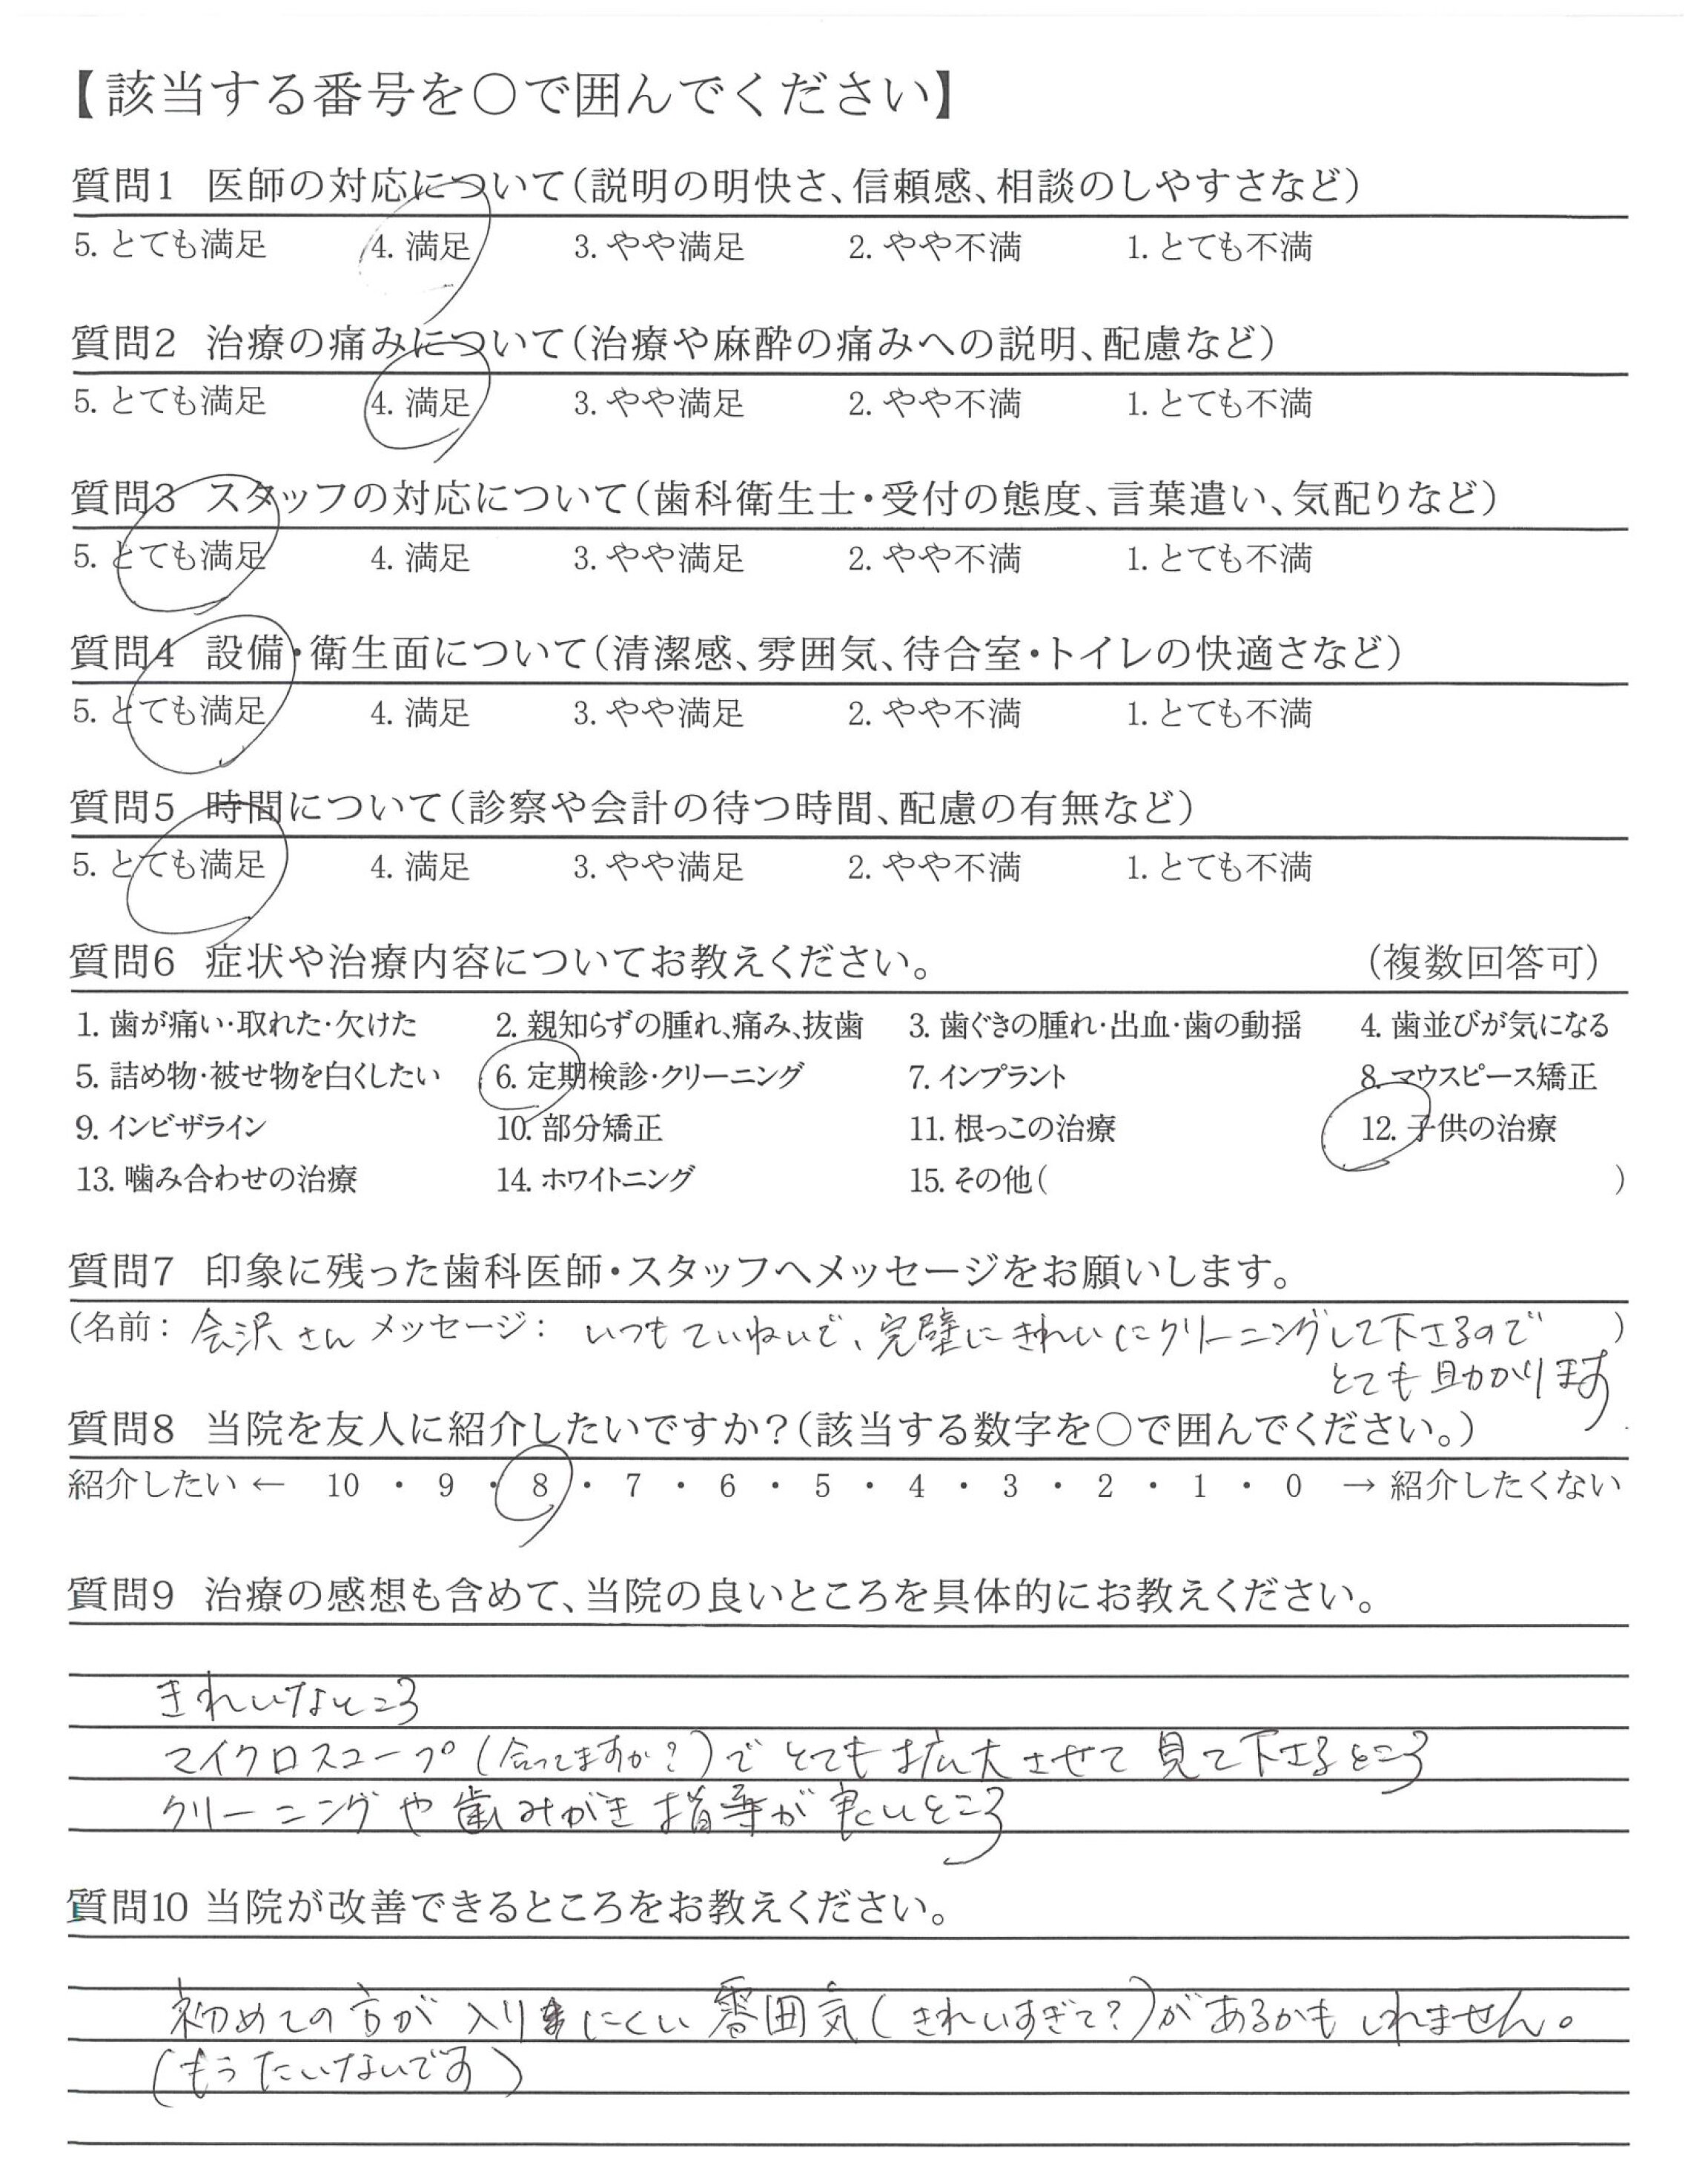 【該当する番号を○で囲んでください】
質問1 医師の対応について（説明の明快さ、信頼感、相談のしやすさなど）
5. とても満足 4. 満足 3. やや満足 2. やや不満 1. とても不満
質問2 治療の痛みについて（治療や麻酔の痛みへの説明、配慮など）
5. とても満足 4. 満足 3. やや満足 2. やや不満 1. とても不満
質問3 スタッフの対応について（歯科衛生士・受付の態度、言葉遣い、気配りなど）
5. とても満足 4. 満足 3. やや満足 2. やや不満 1. とても不満
質問4 設備・衛生面について（清潔感、雰囲気、待合室・トイレの快適さなど）
5. とても満足 4. 満足 3. やや満足 2. やや不満 1. とても不満
質問5 時間について（診察や会計の待つ時間、配慮の有無など）
5. とても満足 4. 満足 3. やや満足 2. やや不満 1. とても不満
質問6 症状や治療内容についてお教えください。 （複数回答可）
1. 歯が痛い・取れた・欠けた 2. 親知らずの腫れ、痛み、抜歯 3. 歯ぐきの腫れ・出血・歯の動揺 4. 歯並びが気になる
5. 詰め物・被せ物を白くしたい 6. 定期検診・クリーニング 7. インプラント 8. マウスピース矯正
9. インビザライン 10. 部分矯正 11. 根っこの治療 12. 子供の治療
13. 噛み合わせの治療 14. ホワイトニング 15. その他（ ）
質問7 印象に残った歯科医師・スタッフへメッセージをお願いします。
（名前： 会沢さん メッセージ： いつもていねいで、完璧にきれいにクリーニングして下さるので ）
とても助かります
質問8 当院を友人に紹介したいですか？（該当する数字を○で囲んでください。）
紹介したい ← 10 ・ 9 ・ 8 ・ 7 ・ 6 ・ 5 ・ 4 ・ 3 ・ 2 ・ 1 ・ 0 → 紹介したくない
質問9 治療の感想も含めて、当院の良いところを具体的にお教えください。
きれいなところ
マイクロスコープ（合ってますか？）でとても拡大させて見て下さるところ
クリーニングや歯みがき指導が良いところ
質問10 当院が改善できるところをお教えください。
初めての方が入りにくい雰囲気（きれいすぎて？）があるかもしれません。
（もったいないです）